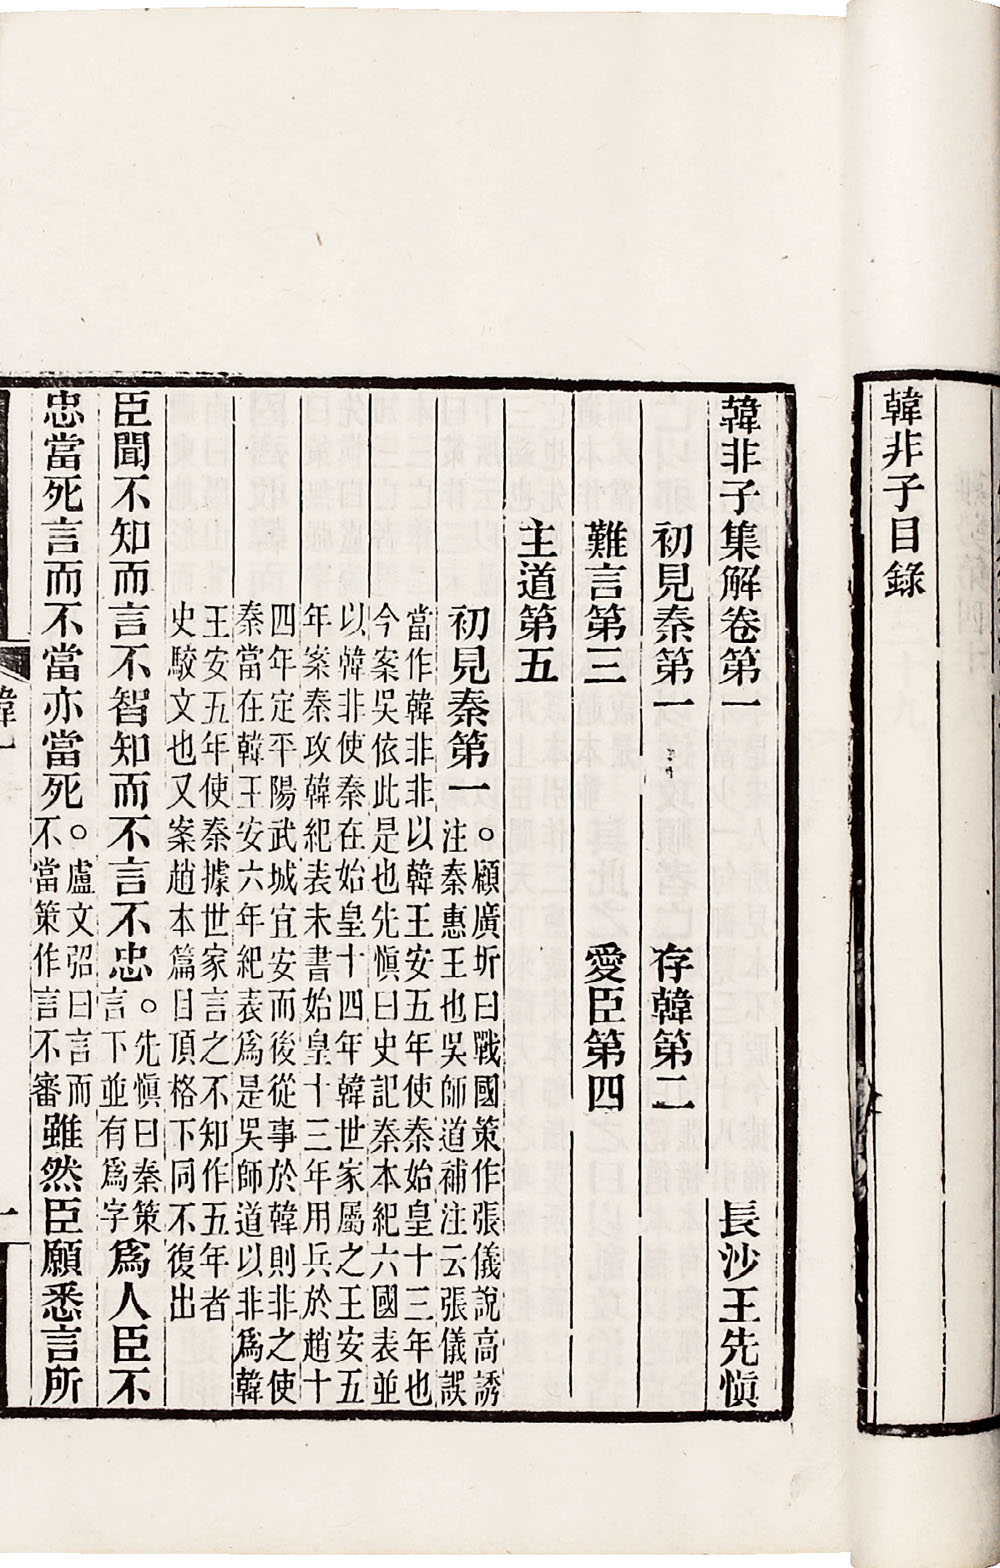 韓非子目錄
韓非子集解卷第一　長沙王先愼
初見秦第一　存韓第二
難言第三　愛臣第四
主道第五
初見秦第一○顧廣圻曰戰國策作張儀說高誘
注秦惠王也吳師道補注云張儀誤
當作韓非非以韓王安五年使秦始皇十三年也
今案吳依此是也先愼曰史記秦本紀六國表並
以韓非使秦在始皇十四年韓世家屬之王安五
年案秦攻韓紀表未書始皇十三年用兵於趙十
四年定平陽武城宜安而後從事於韓則非之使
秦當在韓王安六年紀表爲是吳師道以非爲韓
王安五年使秦據世家言之不知作五年者
史駮文也又案趙本篇目頂格下同不復出
臣聞不知而言不智知而不言不忠○先愼曰秦策言下並有爲字爲人臣不
忠當死言而不當亦當死○盧文弨曰言而不當策作言不審雖然臣願悉言所